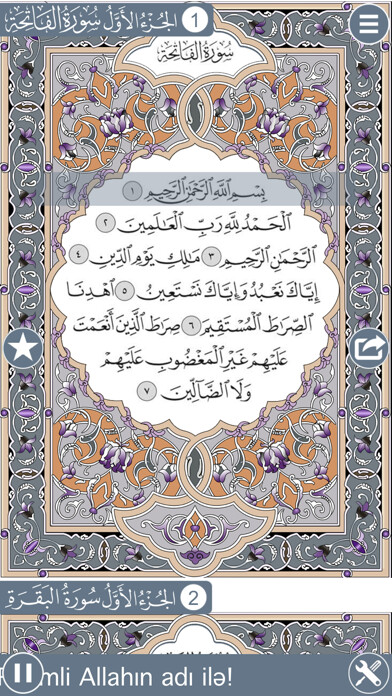 1 الجزء الأول سورة الفاتحة
سورة الفاتحة
بِسْمِ ٱللَّهِ ٱلرَّحْمَٰنِ ٱلرَّحِيمِ ١
ٱلْحَمْدُ لِلَّهِ رَبِّ ٱلْعَٰلَمِينَ ٢
ٱلرَّحْمَٰنِ ٱلرَّحِيمِ ٣ مَٰلِكِ يَوْمِ ٱلدِّينِ ٤
إِيَّاكَ نَعْبُدُ وَإِيَّاكَ نَسْتَعِينُ ٥ ٱهْدِنَا
ٱلصِّرَٰطَ ٱلْمُسْتَقِيمَ ٦ صِرَٰطَ ٱلَّذِينَ أَنْعَمْتَ
عَلَيْهِمْ غَيْرِ ٱلْمَغْضُوبِ عَلَيْهِمْ
وَلَا ٱلضَّآلِّينَ ٧
2 الجُزْءُ الأَوَّلُ سُورَةُ البَقَرَة
mli Allahın adı ilə!